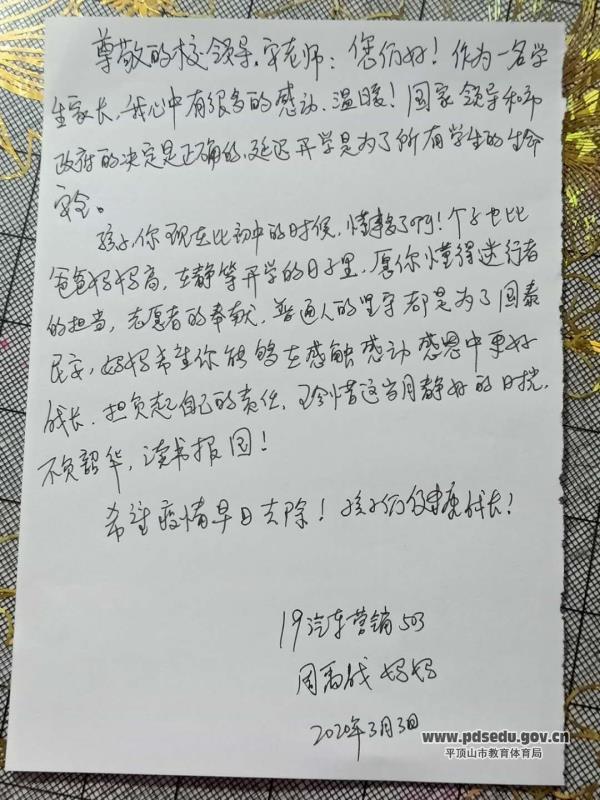 尊敬的校领导、宋老师：您们好！作为一名学
生家长，我心中有很多的感动、温暖！国家领导和市
政府的决定是正确的，延迟开学是为了所有学生的生命
安全。
孩子，你现在比初中的时候，懂事多了啊！个子也比
爸爸妈妈高，在静等开学的日子里，愿你懂得逆行者
的担当，志愿者的奉献，普通人的坚守都是为了国泰
民安，妈妈希望你能够在感触感动感恩中更好
成长，担负起自己的责任，珍惜这岁月静好的时光，
不负韶华，读书报国！
希望疫情早日去除！孩子们健康成长！
19汽车营销503
周禹成妈妈
2020年3月3日
www.pdsedu.gov.cn
平顶山市教育体育局